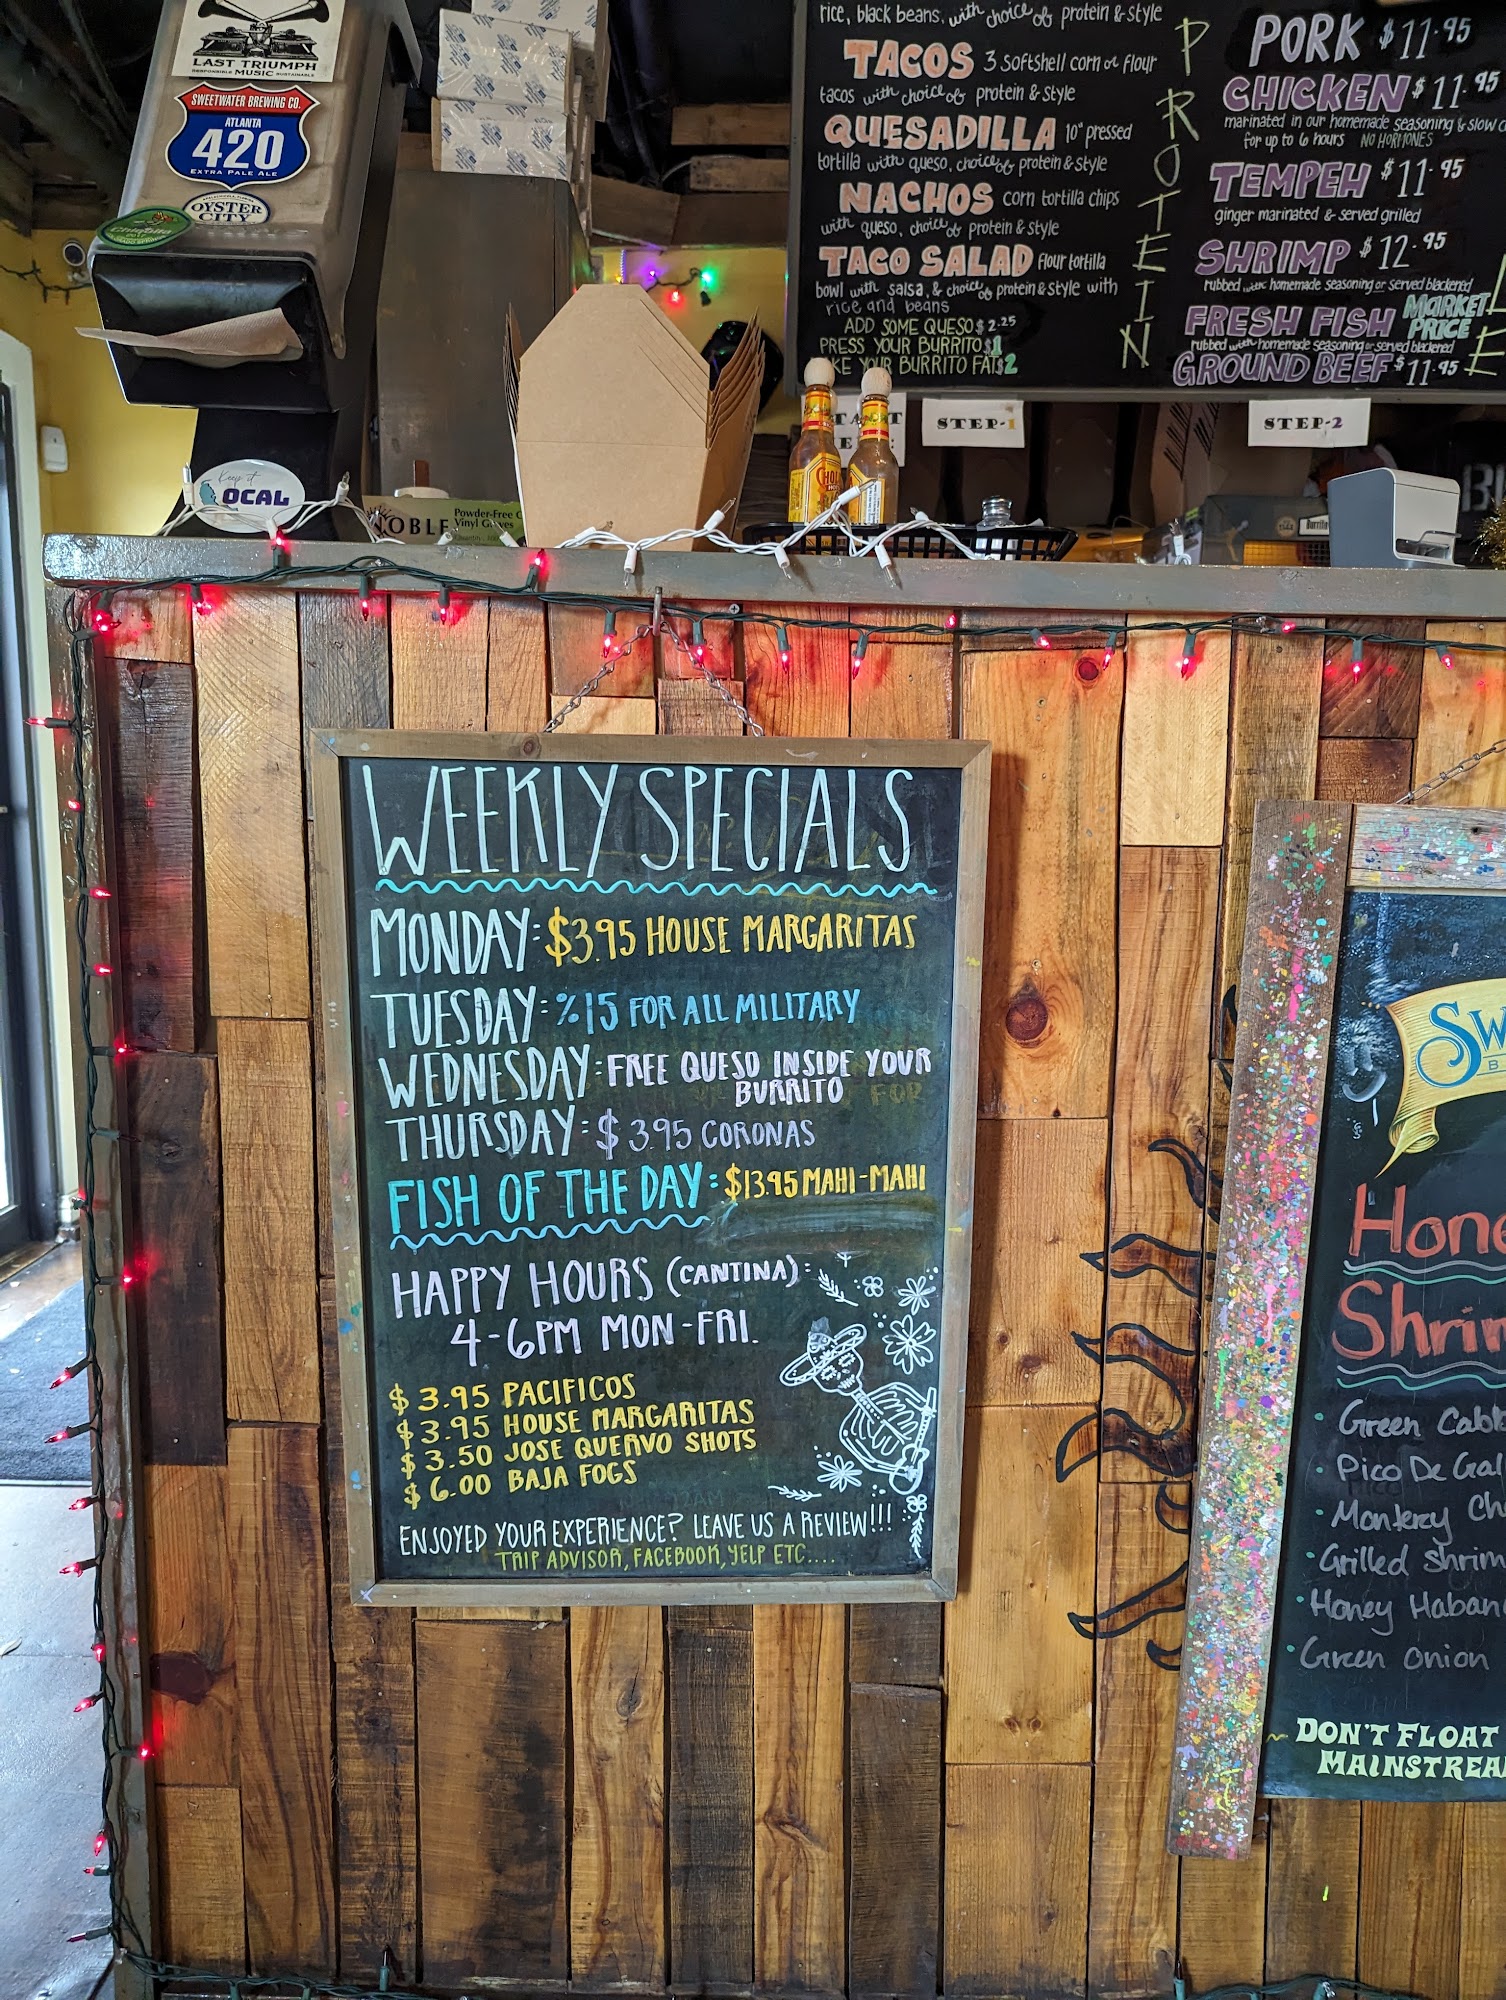 LAST TRIUMPH
RESPONSIBLE MUSIC SUSTAINABLE
SWEETWATER BREWING CO.
ATLANTA
420
EXTRA PALE ALE
OYSTER
CITY
Keep it
LOCAL
NOBLE
Powder-Free
Vinyl Gloves
rice, black beans, with choice of protein & style
TACOS 3 softshell corn or flour
tacos with choice of protein & style
QUESADILLA 10" pressed
tortilla with queso, choice of protein & style
NACHOS corn tortilla chips
with queso, choice of protein & style
TACO SALAD flour tortilla
bowl with salsa, & choice of protein & style with
rice and beans
ADD SOME QUESO $2.25
PRESS YOUR BURRITO $1
KE YOUR BURRITO FAT $2
PROTEIN
PORK $11.95
CHICKEN $11.95
marinated in our homemade seasoning & slow
for up to 6 hours NO HORMONES
TEMPEH $11.95
ginger marinated & served grilled
SHRIMP $12.95
rubbed with homemade seasoning or served blackened
FRESH FISH MARKET PRICE
rubbed with homemade seasoning or served blackened
GROUND BEEF $11.95
STEP-1
STEP-2
WEEKLY SPECIALS
MONDAY: $3.95 HOUSE MARGARITAS
TUESDAY: %15 FOR ALL MILITARY
WEDNESDAY: FREE QUESO INSIDE YOUR
BURRITO
THURSDAY: $3.95 CORONAS
FISH OF THE DAY: $13.95 MAHI-MAHI
HAPPY HOURS (CANTINA):
4-6PM MON-FRI.
$3.95 PACIFICOS
$3.95 HOUSE MARGARITAS
$3.50 JOSE QUERVO SHOTS
$6.00 BAJA FOGS
ENJOYED YOUR EXPERIENCE? LEAVE US A REVIEW!!!
TRIP ADVISOR, FACEBOOK, YELP ETC....
Sw
Hone
Shrim
• Green Cabb
• Pico De Gal
• Monterey Ch
• Grilled Shrim
• Honey Haban
• Green Onion
DON'T FLOAT
MAINSTREA